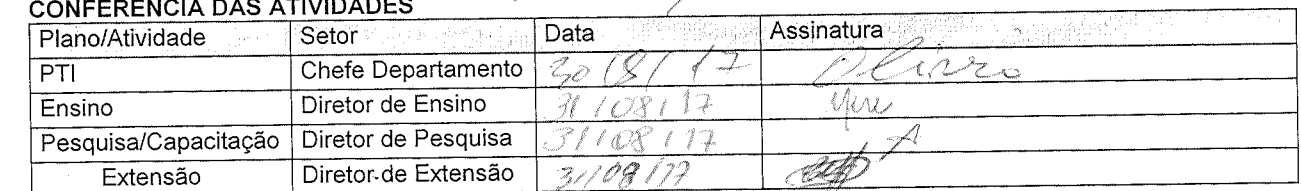 CONFERÊNCIA DAS ATIVIDADES
Plano/Atividade Setor Data Assinatura
PTI Chefe Departamento 30/8/17
Ensino Diretor de Ensino 31/08/17
Pesquisa/Capacitação Diretor de Pesquisa 31/08/17
Extensão Diretor de Extensão 31/08/17